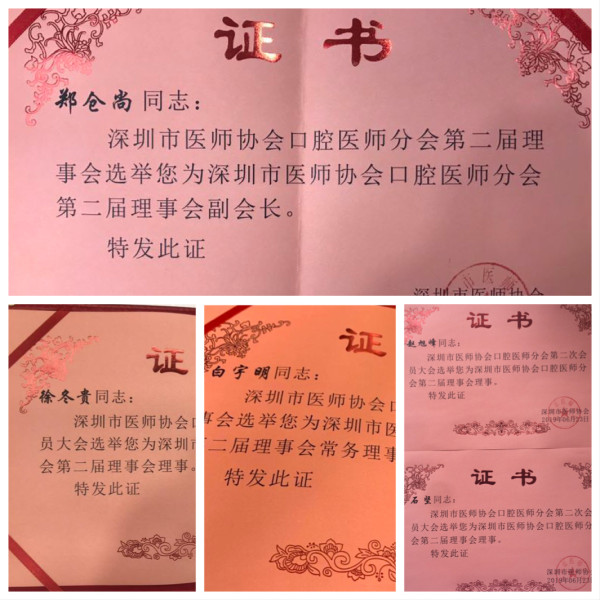 证书
郑仓尚同志：
深圳市医师协会口腔医师分会第二届理
事会选举您为深圳市医师协会口腔医师分会
第二届理事会副会长。
特发此证
深圳市医师协会
证
徐冬贵同志：
深圳市医师协会
员大会选举您为深圳
会第二届理事会理事。
特发此证
证
白宇明同志：
深圳市医师协会口
事会选举您为深圳市医
二届理事会常务理事
特发此证
证书
赵旭峰同志：
深圳市医师协会口腔医师分会第二次会
员大会选举您为深圳市医师协会口腔医师分
会第二届理事会理事。
特发此证
深圳市医师协会
2019年06月23日
证书
石壁同志：
深圳市医师协会口腔医师分会第二次会
员大会选举您为深圳市医师协会口腔医师分
会第二届理事会理事。
特发此证
深圳市医师协
2019年06月23